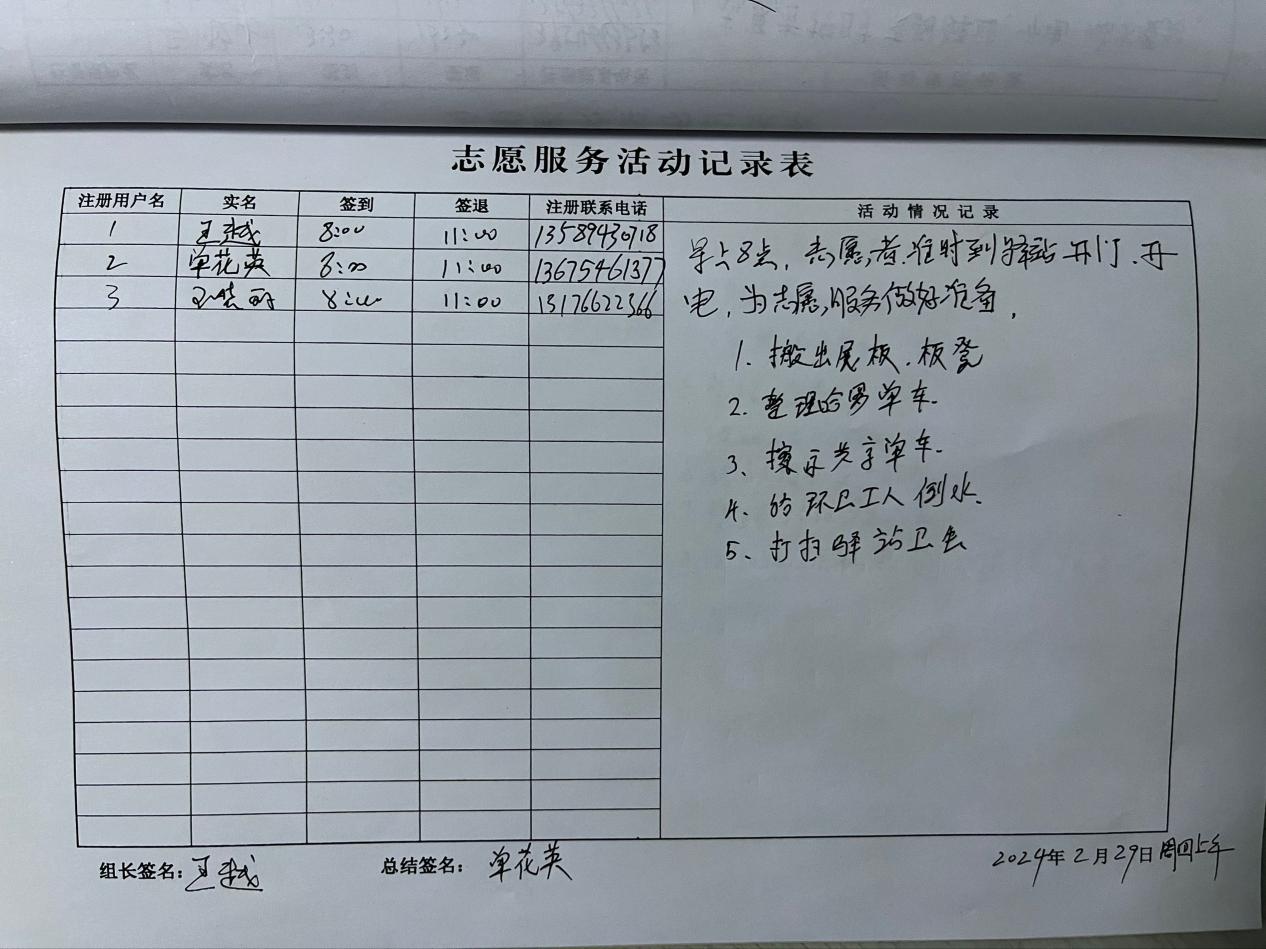 志愿服务活动记录表
注册用户名 实名 签到 签退 注册联系电话 活动情况记录
1 王越 8:00 11:00 13589430718
2 单花英 8:00 11:00 13675461377
3 8:00 11:00 13176622366
早上8点，志愿者准时到驿站开门、开
电，为志愿服务做好准备，
1、搬出展板、板凳
2、整理哈罗单车.
3、摆示共享单车.
4、给环卫工人倒水.
5、打扫驿站卫生
组长签名：王越 总结签名：单花英 2024年2月29日周四上午